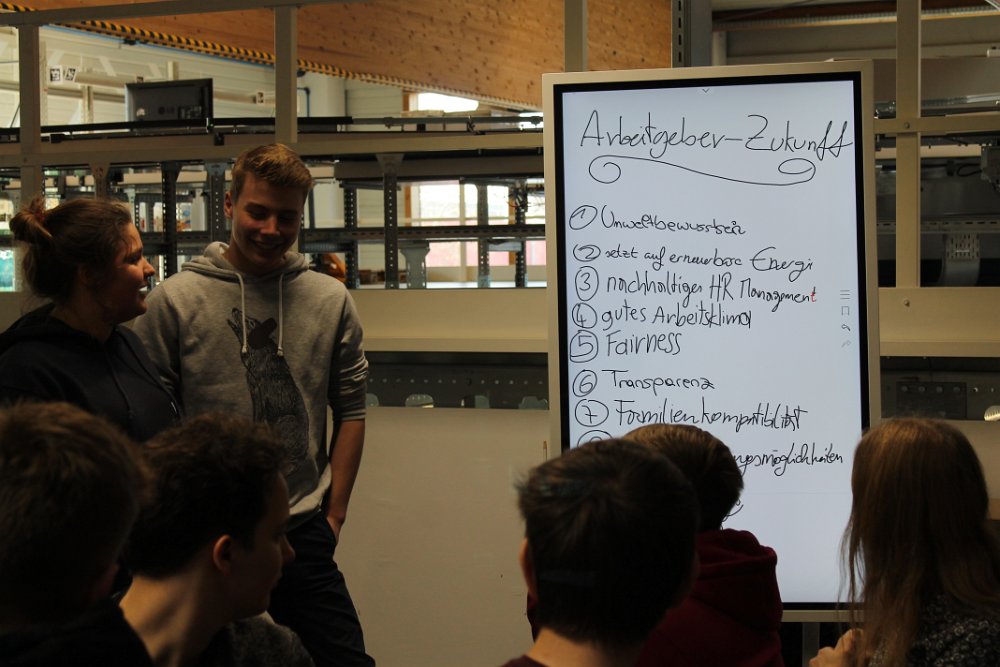 Arbeitgeber-Zukunft
1 Umweltbewusstsein
2 setzt auf erneuerbare Energie
3 nachhaltiger HR Management
4 gutes Arbeitsklima
5 Fairness
6 Transparenz
7 Familienkompatibilität